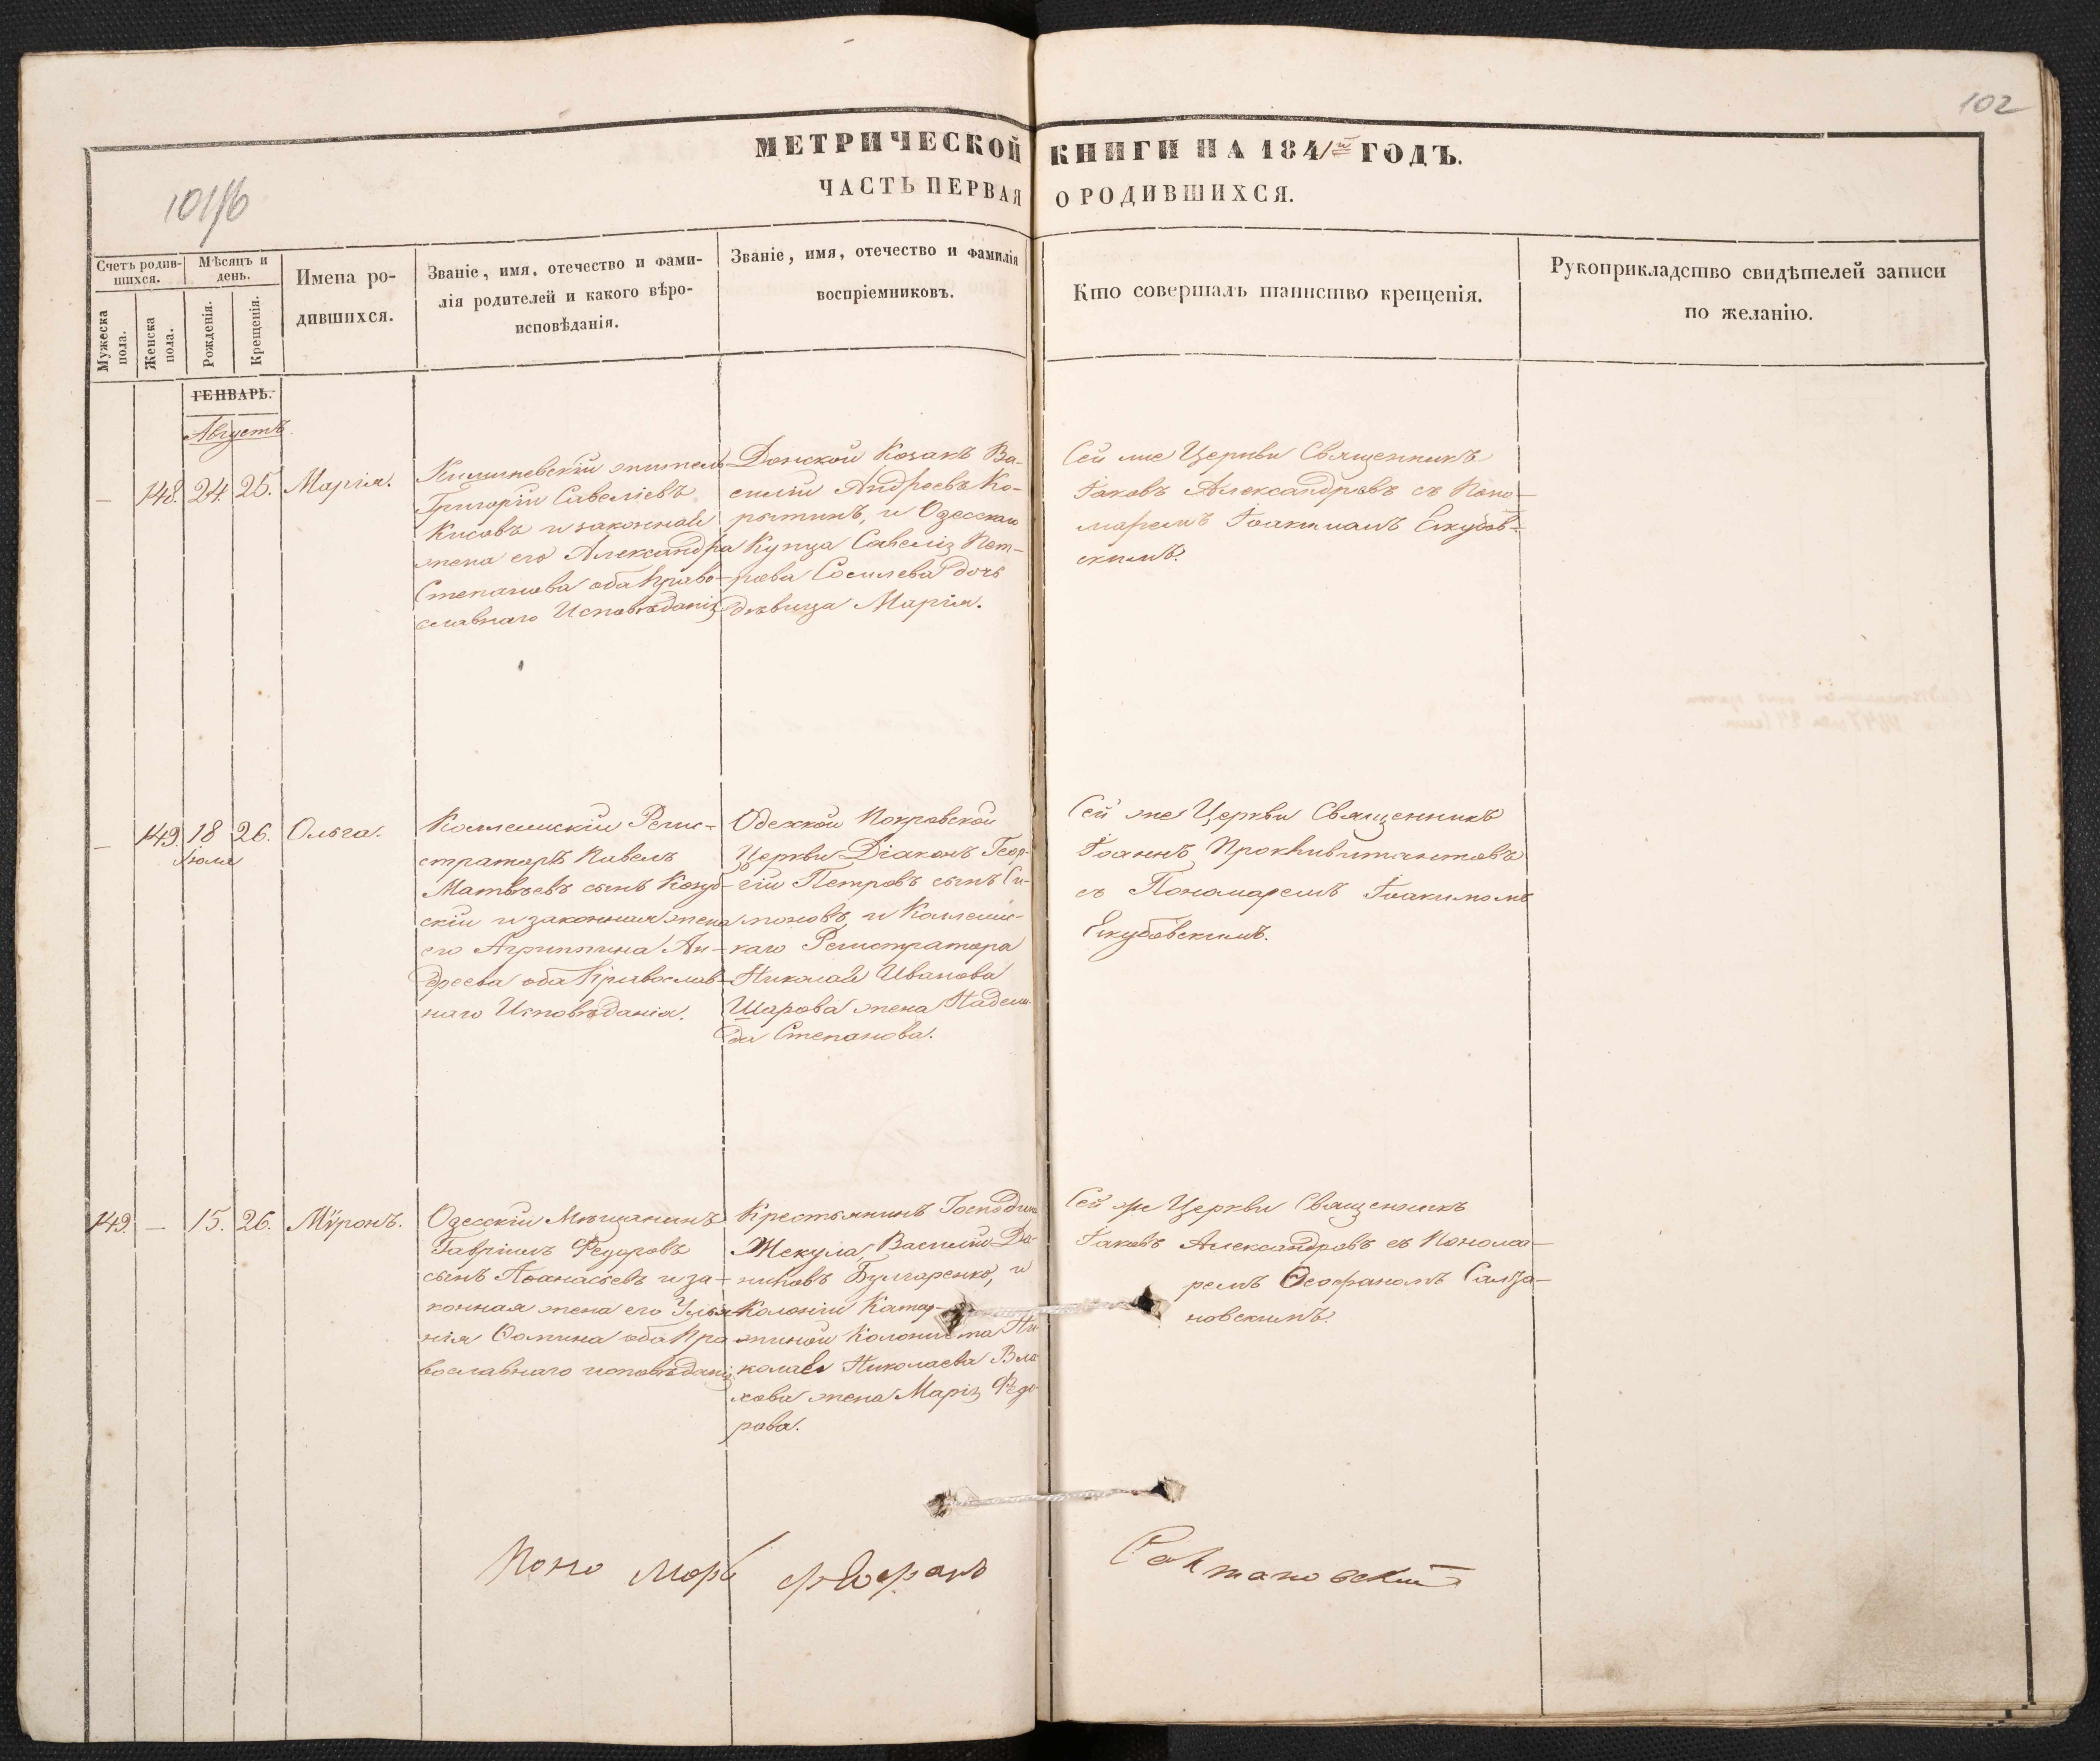 102
МЕТРИЧЕСКОЙ КНИГИ НА 1841й ГОДЪ.
ЧАСТЬ ПЕРВАЯ О РОДИВШИХСЯ.
Счетъ родив-
шихся.
Мѣсяцъ и
день.
Мужеска
пола.
Женска
пола.
Рожденія.
Крещенія.
Имена ро-
дившихся.
Званіе, имя, отечество и фами-
лія родителей и какого вѣро-
исповѣданія.
Званіе, имя, отечество и фамилія
воспріемниковъ.
Кто совершалъ таинство крещенія.
Рукоприкладство свидѣтелей записи
по желанію.
ГЕНВАРЬ.
Августъ
— 148. 24. 25. Марія.
Кишиневскій житель
Григорій Савеліевъ
Кисовъ и законная
жена его Александра
Степанова оба Право-
славнаго Исповѣданія
Донской Козакъ Ва-
силій Андреевъ Ко-
рытинъ, и Одесскаго
Купца Савелія Пет-
рова дочь
дѣвица Марія.
Сей же Церкви Священникъ
Іаковъ Александровъ съ Поно-
маремъ Іоакимомъ Екубов-
скимъ.
— 149. 18 26. Ольга.
Іюля
Коллежскій Регис-
траторъ Павелъ
Матвѣевъ сынъ
скій и законная жена
его Агрипина Ан-
дреева оба Православ-
наго Исповѣданія.
Одесской Покровской
Церкви Діаконъ Геор-
гій Петровъ сынъ Си-
моновъ, и Коллежс-
каго Регистратора
Николая Иванова
Шарова жена Надеж-
да Степанова.
Сей же Церкви Священникъ
Іоаннъ
съ Пономаремъ Іоакимомъ
Екубовскимъ.
149. — 15. 26. Мѵронъ.
Одесскій Мѣщанинъ
Гавріилъ Федоровъ
сынъ Аѳанасьевъ и за-
конная жена его Улья-
нія Ѳомина оба Пра-
вославнаго исповѣданія
Крестьянинъ Господина
Жекула, Василій Да-
ниловъ Булгаренко, и
Колоніи Катар-
жиной Колониста Ни-
колая Николаева Вла-
хова жена Марія Федо-
рова.
Сей же Церкви Священникъ
Іаковъ Александровъ съ Понома-
ремъ Ѳеофаномъ
новскимъ.
Пономарь